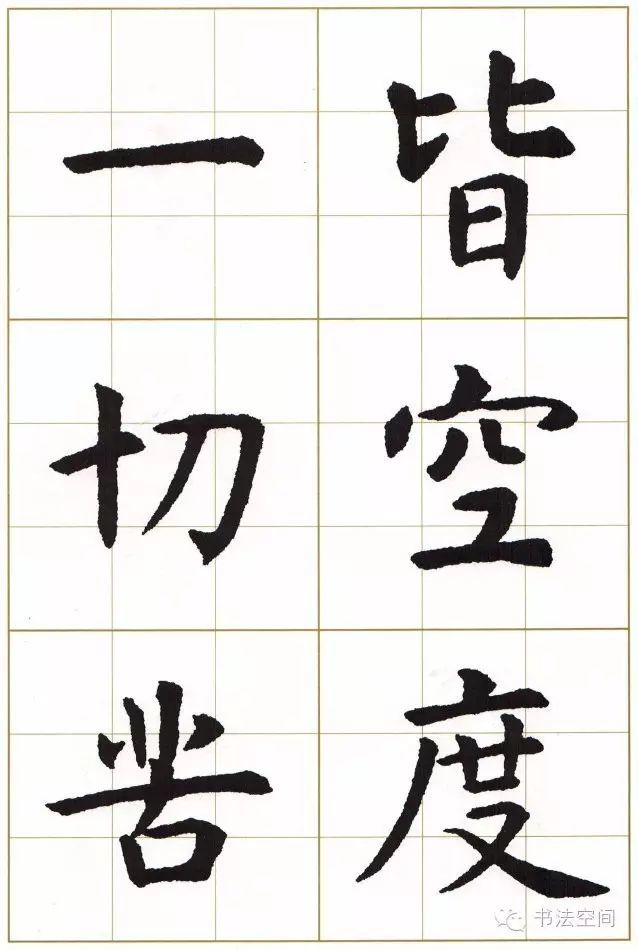 皆空度
一切苦
书法空间